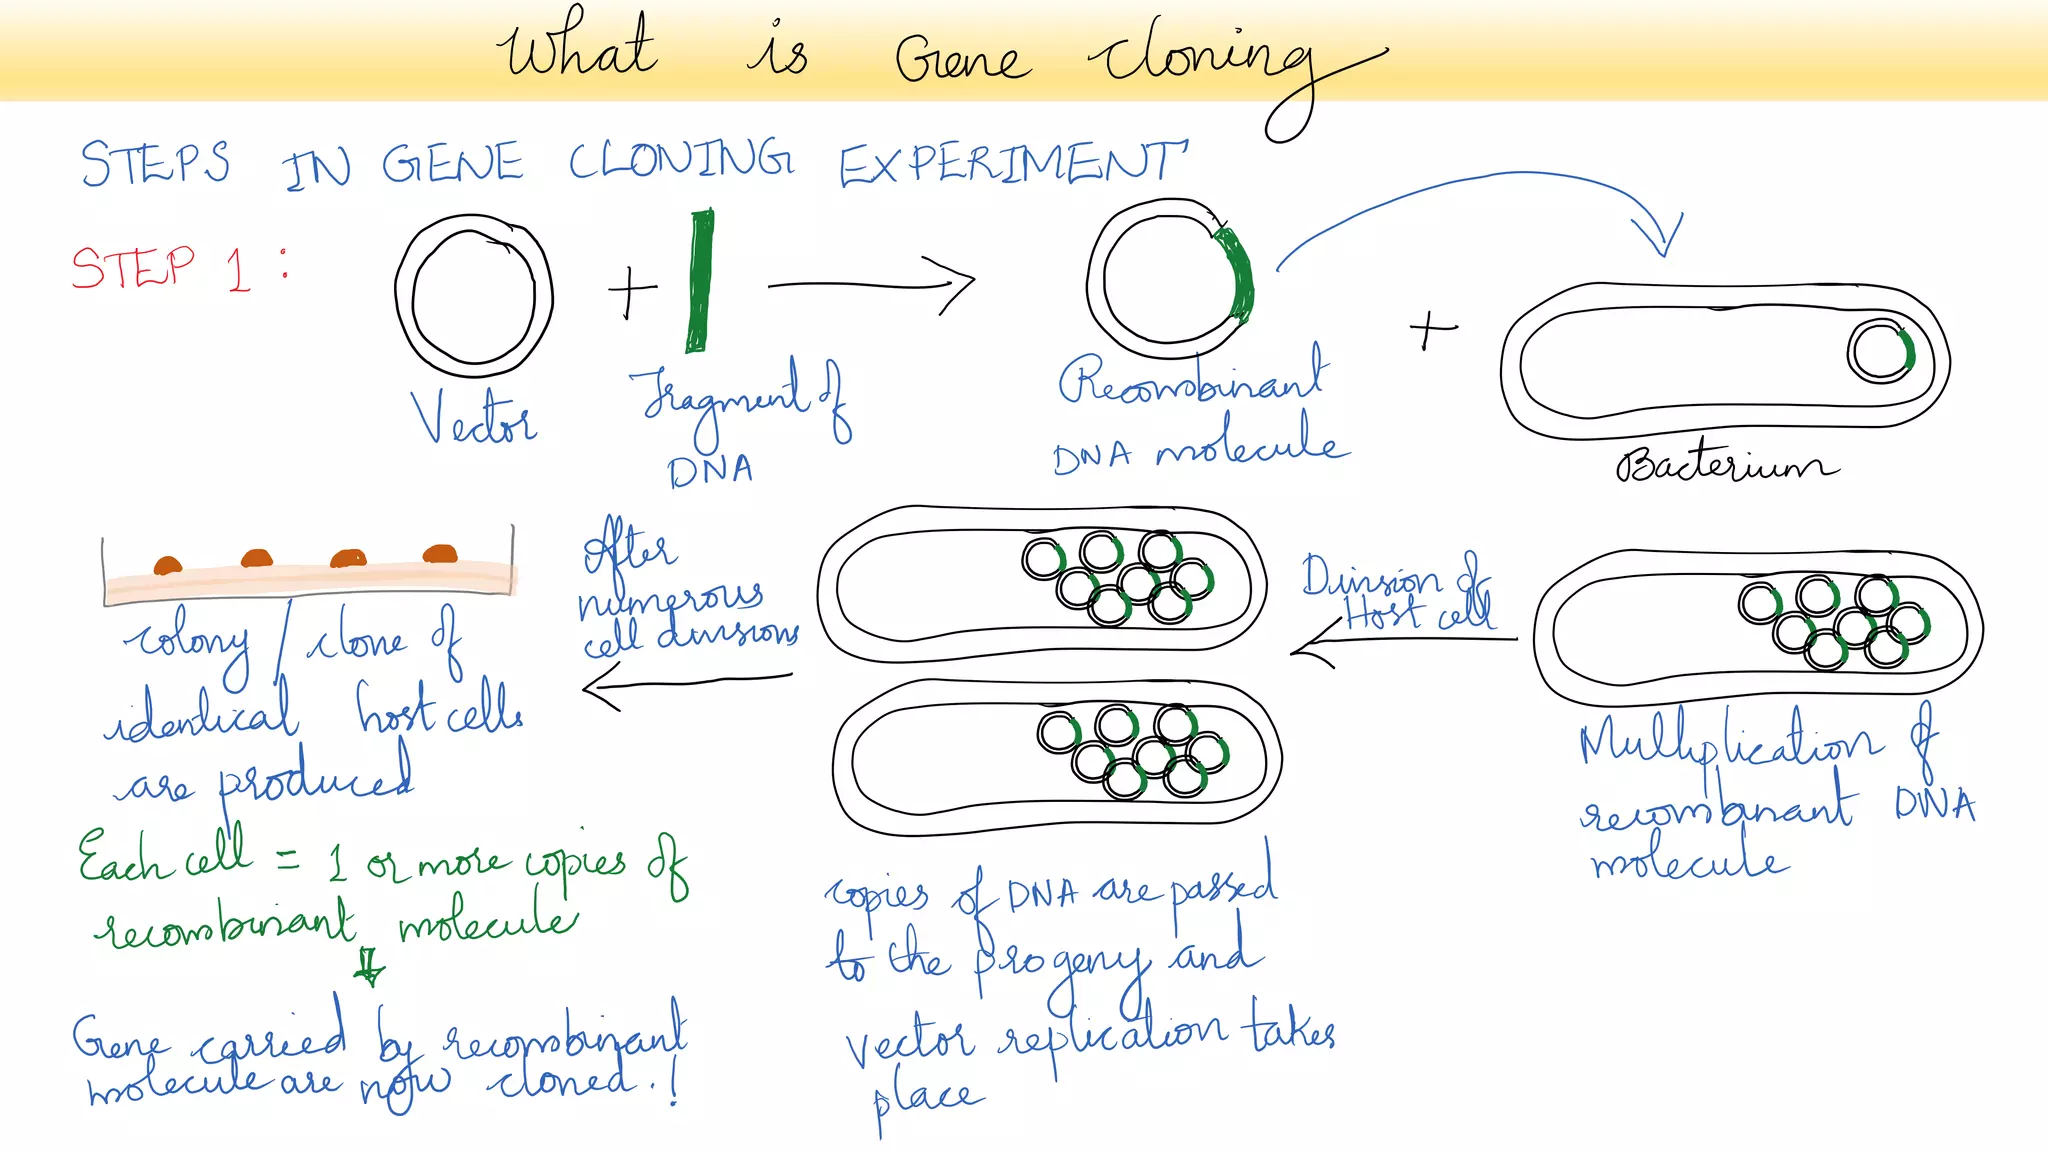 What is Gene cloning
STEPS IN GENE CLONING EXPERIMENT
STEP 1 :
Vector
+
Fragment of
DNA
Recombinant
DNA molecule
+
Bacterium
Multiplication of
recombinant DNA
molecule
Division of
Host cell
copies of DNA are passed
to the progeny and
vector replication takes
place
After
numerous
cell divisions
colony / clone of
identical host cells
are produced
Each cell = 1 or more copies of
recombinant molecule
Gene carried by recombinant
molecule are now cloned.!